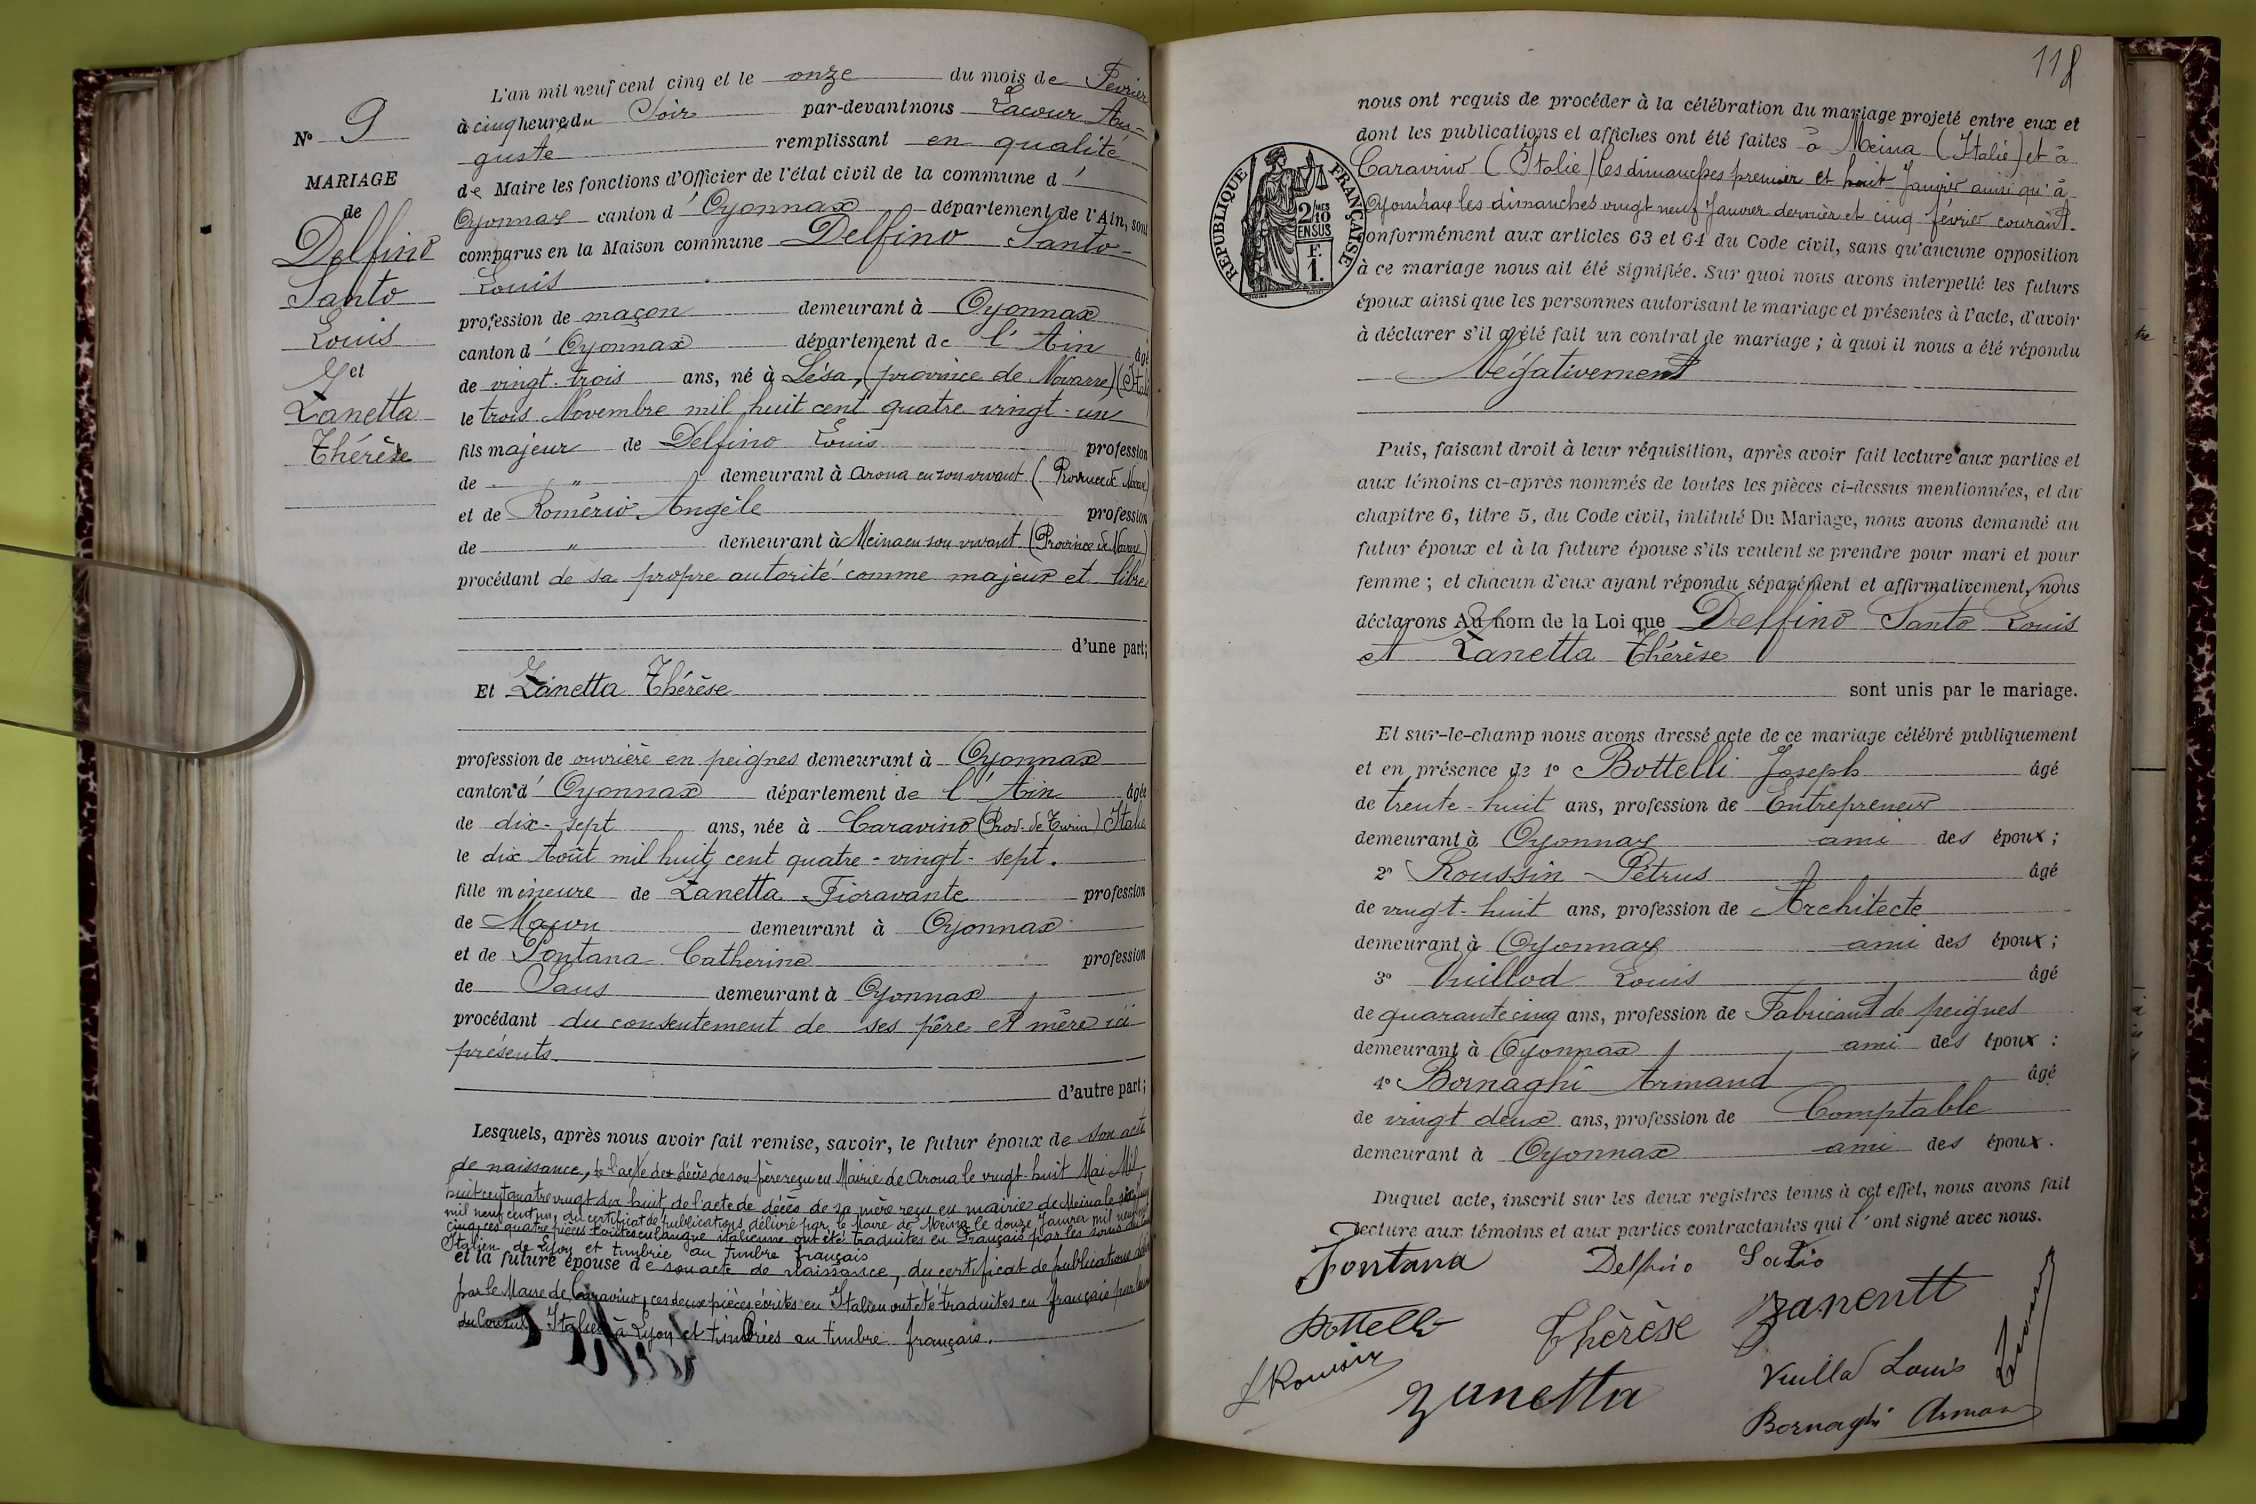 N° 9
MARIAGE
de
Delfino
Santo
Louis
et
Zanetta
Thérèse
L'an mil neuf cent cinq et le onze du mois de Février
à cinq heures du Soir par-devant nous Lacour Au-
guste remplissant en qualité
de Maire les fonctions d'Officier de l'état civil de la commune d'
Oyonnax canton d'Oyonnax département de l'Ain, sont
comparus en la Maison commune Delfino Santo
Louis
profession de maçon demeurant à Oyonnax
canton d'Oyonnax département de l'Ain âgé
de vingt-trois ans, né à Lésa, (province de Novarre) (Italie
le trois Novembre mil huit cent quatre vingt-un
fils majeur de Delfino Louis profession
de " demeurant à Arona en son vivant (Province de Novare)
et de Romério Angèle profession
de " demeurant à Meina en son vivant (Province de Novare)
procédant de sa propre autorité comme majeur et libre
d'une part;
Et Zanetta Thérèse
profession de ouvrière en peignes demeurant à Oyonnax
canton d'Oyonnax département de l'Ain âgée
de dix-sept ans, née à Caravino (Prov. de Turin) Italie
le dix Août mil huit cent quatre-vingt-sept.
fille mineure de Zanetta Fioravante profession
de Maçon demeurant à Oyonnax
et de Fontana Catherine profession
de Sans demeurant à Oyonnax
procédant du consentement de ses père et mère ici
présents
d'autre part;
Lesquels, après nous avoir fait remise, savoir, le futur époux de son acte
de naissance, de l'acte de décès de son père reçu en Mairie de Arona le vingt-huit Mai Mil
huit cent quatre vingt dix huit, de l'acte de décès de sa mère reçu en mairie de Meina le
mil neuf cent un, du certificat de publications délivré par le Maire de Meina le douze Janvier mil neuf cent
cinq, ces quatre pièces toutes en langue italienne ont été traduites en Français par les soins du
Italien de Lyon et timbrée au timbre français
et la future épouse de son acte de naissance, du certificat de publications
par le Maire de Caravino, ces deux pièces écrites en Italien ont été traduites en français par
du Consul Italien à Lyon et timbrées au timbre français.
118
nous ont requis de procéder à la célébration du mariage projeté entre eux et
dont les publications et affiches ont été faites à Meina (Italie) et à
Caravino (Italie) les dimanches premier et huit Janvier ainsi qu'à
Oyonnax les dimanches vingt neuf Janvier dernier et cinq février courant.
RÉPUBLIQUE FRANÇAISE
2/10 EN SUS
F.
1.
conformément aux articles 63 et 64 du Code civil, sans qu'aucune opposition
à ce mariage nous ait été signifiée. Sur quoi nous avons interpellé les futurs
époux ainsi que les personnes autorisant le mariage et présentes à l'acte, d'avoir
à déclarer s'il a été fait un contrat de mariage ; à quoi il nous a été répondu
Négativement
Puis, faisant droit à leur réquisition, après avoir fait lecture aux parties et
aux témoins ci-après nommés de toutes les pièces ci-dessus mentionnées, et du
chapitre 6, titre 5, du Code civil, intitulé Du Mariage, nous avons demandé au
futur époux et à la future épouse s'ils veulent se prendre pour mari et pour
femme ; et chacun d'eux ayant répondu séparément et affirmativement, nous
déclarons Au nom de la Loi que Delfino Santo Louis
et Zanetta Thérèse
sont unis par le mariage.
Et sur-le-champ nous avons dressé acte de ce mariage célébré publiquement
et en présence de 1° Bottelli Joseph âgé
de trente-huit ans, profession de Entrepreneur
demeurant à Oyonnax ami des époux ;
2° Roussin Pétrus âgé
de vingt-huit ans, profession de Architecte
demeurant à Oyonnax ami des époux ;
3° Vuillod Louis âgé
de quarante cinq ans, profession de Fabricant de peignes
demeurant à Oyonnax ami des époux :
4° Bornaghi Armand âgé
de vingt deux ans, profession de Comptable
demeurant à Oyonnax ami des époux.
Duquel acte, inscrit sur les deux registres tenus à cet effet, nous avons fait
lecture aux témoins et aux parties contractantes qui l'ont signé avec nous.
Fontana Delfino
Bottelli Thérèse Zanentt
Zanetta Louis
Bornaghi Arman